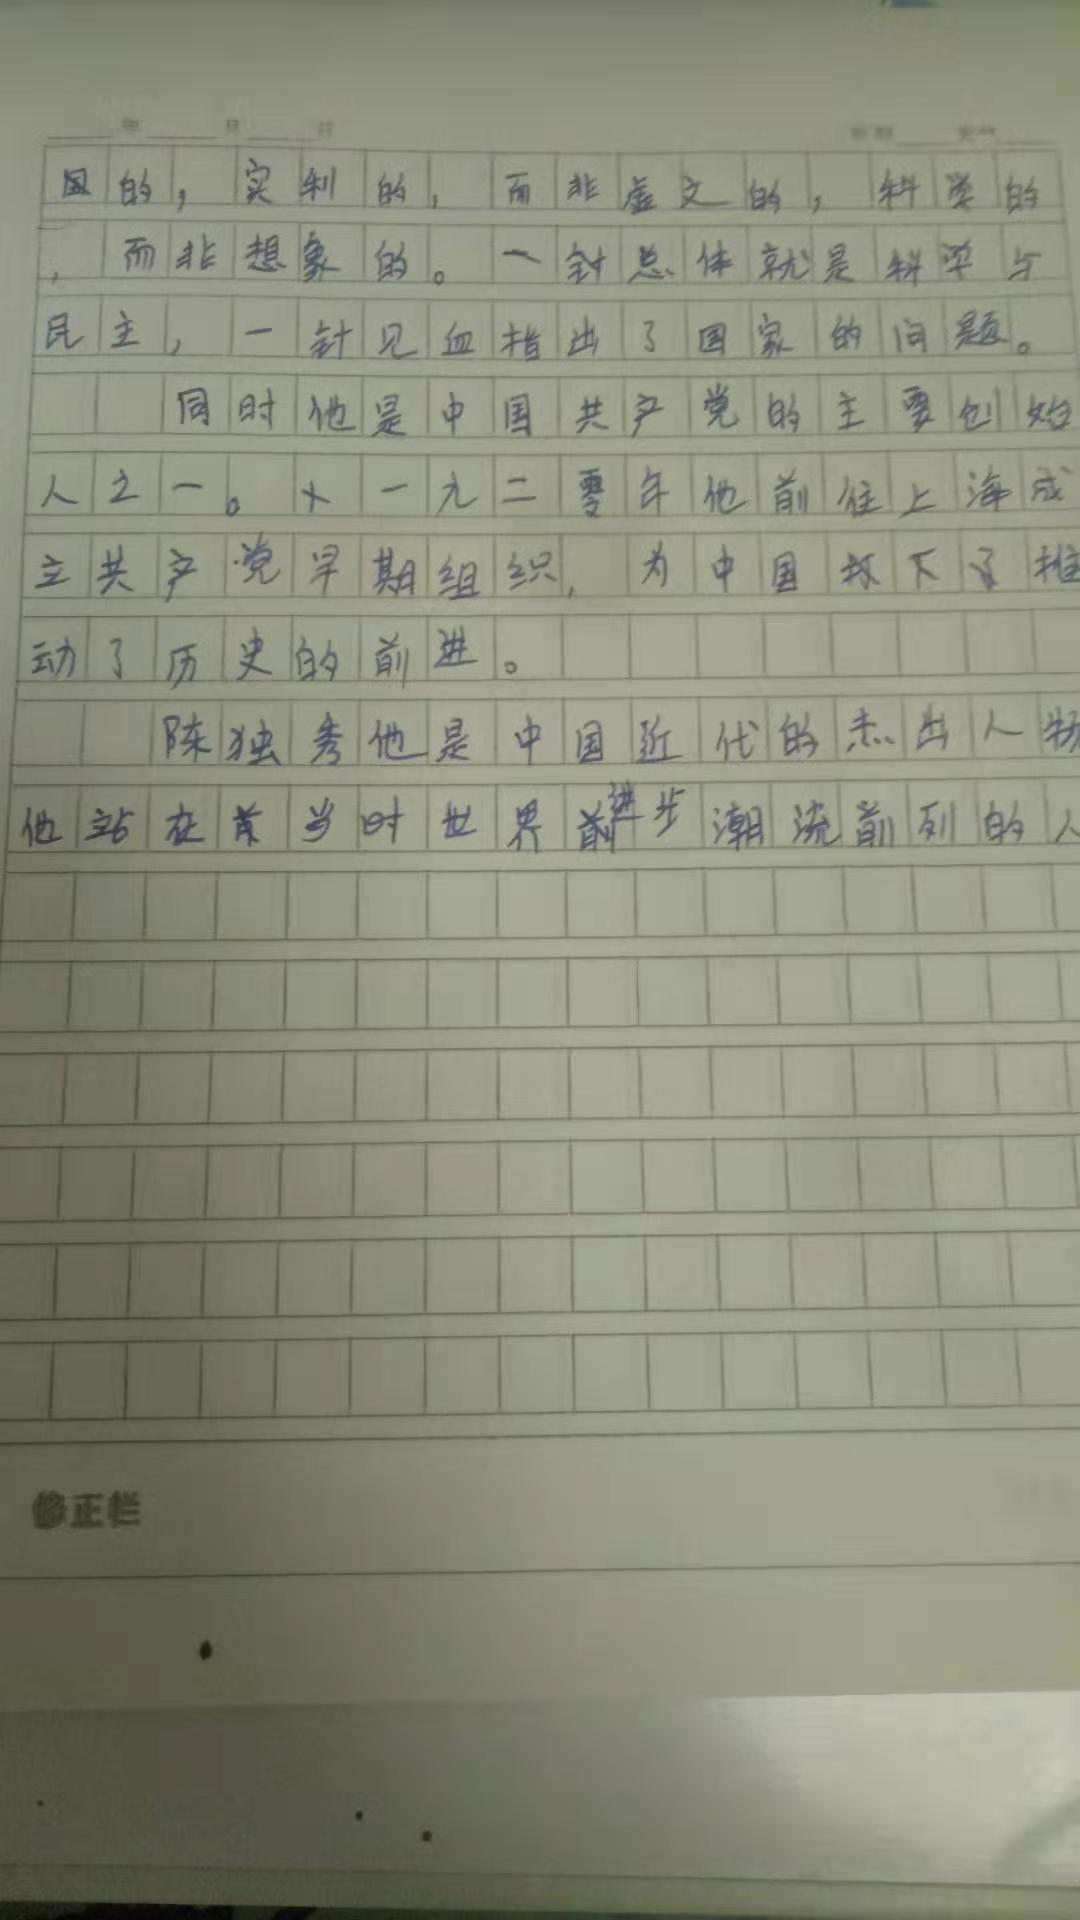 年 月 日 星期 天气
国的，实利的，而非虚文的，科学的
，而非想象的。一针总体就是科学与
民主，一针见血指出了国家的问题。
同时他是中国共产党的主要创始
人之一。一九二零年他前往上海成
立共产党早期组织，为中国 下了推
动了历史的前进。
陈独秀他是中国近代的杰出人物
他站在 当时世界前进步潮流前列的人
修正栏